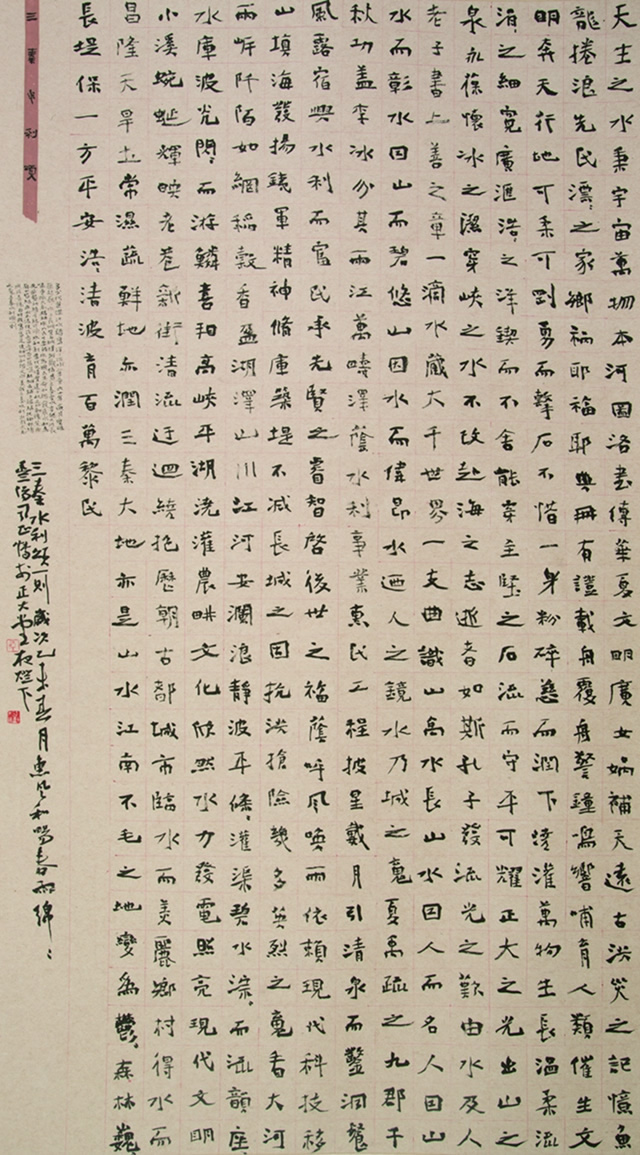 三秦水利頌
天生之水秉宇宙萬物本河圖洛書傳華夏文明廣女媧補天遠古洪災之記憶魚
龍捲浪先民漂々之家鄉禍耶福耶典冊有證載舟覆舟警鐘鳴響哺育人類催生文
明奔天行地可柔可剛勇而擊石不惜一身粉碎慈而潤下澆灌萬物生長柔流
涓之細寬廣滙浩々之洋鍥而不舍能穿堅之石流而守平可耀正大之光出山之
泉永葆懷冰之潔穿峽之水不改赴海之志逝者如斯孔子發流光之歎由水及人
老子書上善之章一滴水蔵大千世界一支曲識山高水長山水因人而名人因山
水而彰水因山而碧悠山因水而偉昂水迺人之鏡水乃城之䰟夏禹疏之九郡千
秋功盖李冰分其兩江萬疇澤蔭水利事業惠民工程披星戴月引清泉而鑿洞餐
風露宿興水利而富民承先賢之睿智啓後世之福蔭呼風喚雨依賴現代科技移
山填海發揚鐵軍精神脩庫築堤不减長城之固抗洪搶險幾多英烈之䰟看大河
兩岸阡陌如綢稻穀香盈湖澤山川江河安瀾浪静波平條々灌渠碧水淙々而涵韻座
水庫波光閃々而游鱗喜和高峽平湖澆灌農畊文化欣然水力發電照亮現代文明
小溪蜿蜒輝映老巷新街清流迂迴繞抱歷朝古都城市臨水而美麗鄉村得水而
昌隆天旱土常濕蔬鮮地亦潤三秦大地亦是山水江南不毛之地變爲鬱々森林巍
長堤保一方平安浩々清波育百萬黎民
三秦水利頌一則歲次乙未春月惠風和暢春雨綿々
於正大堂燈下